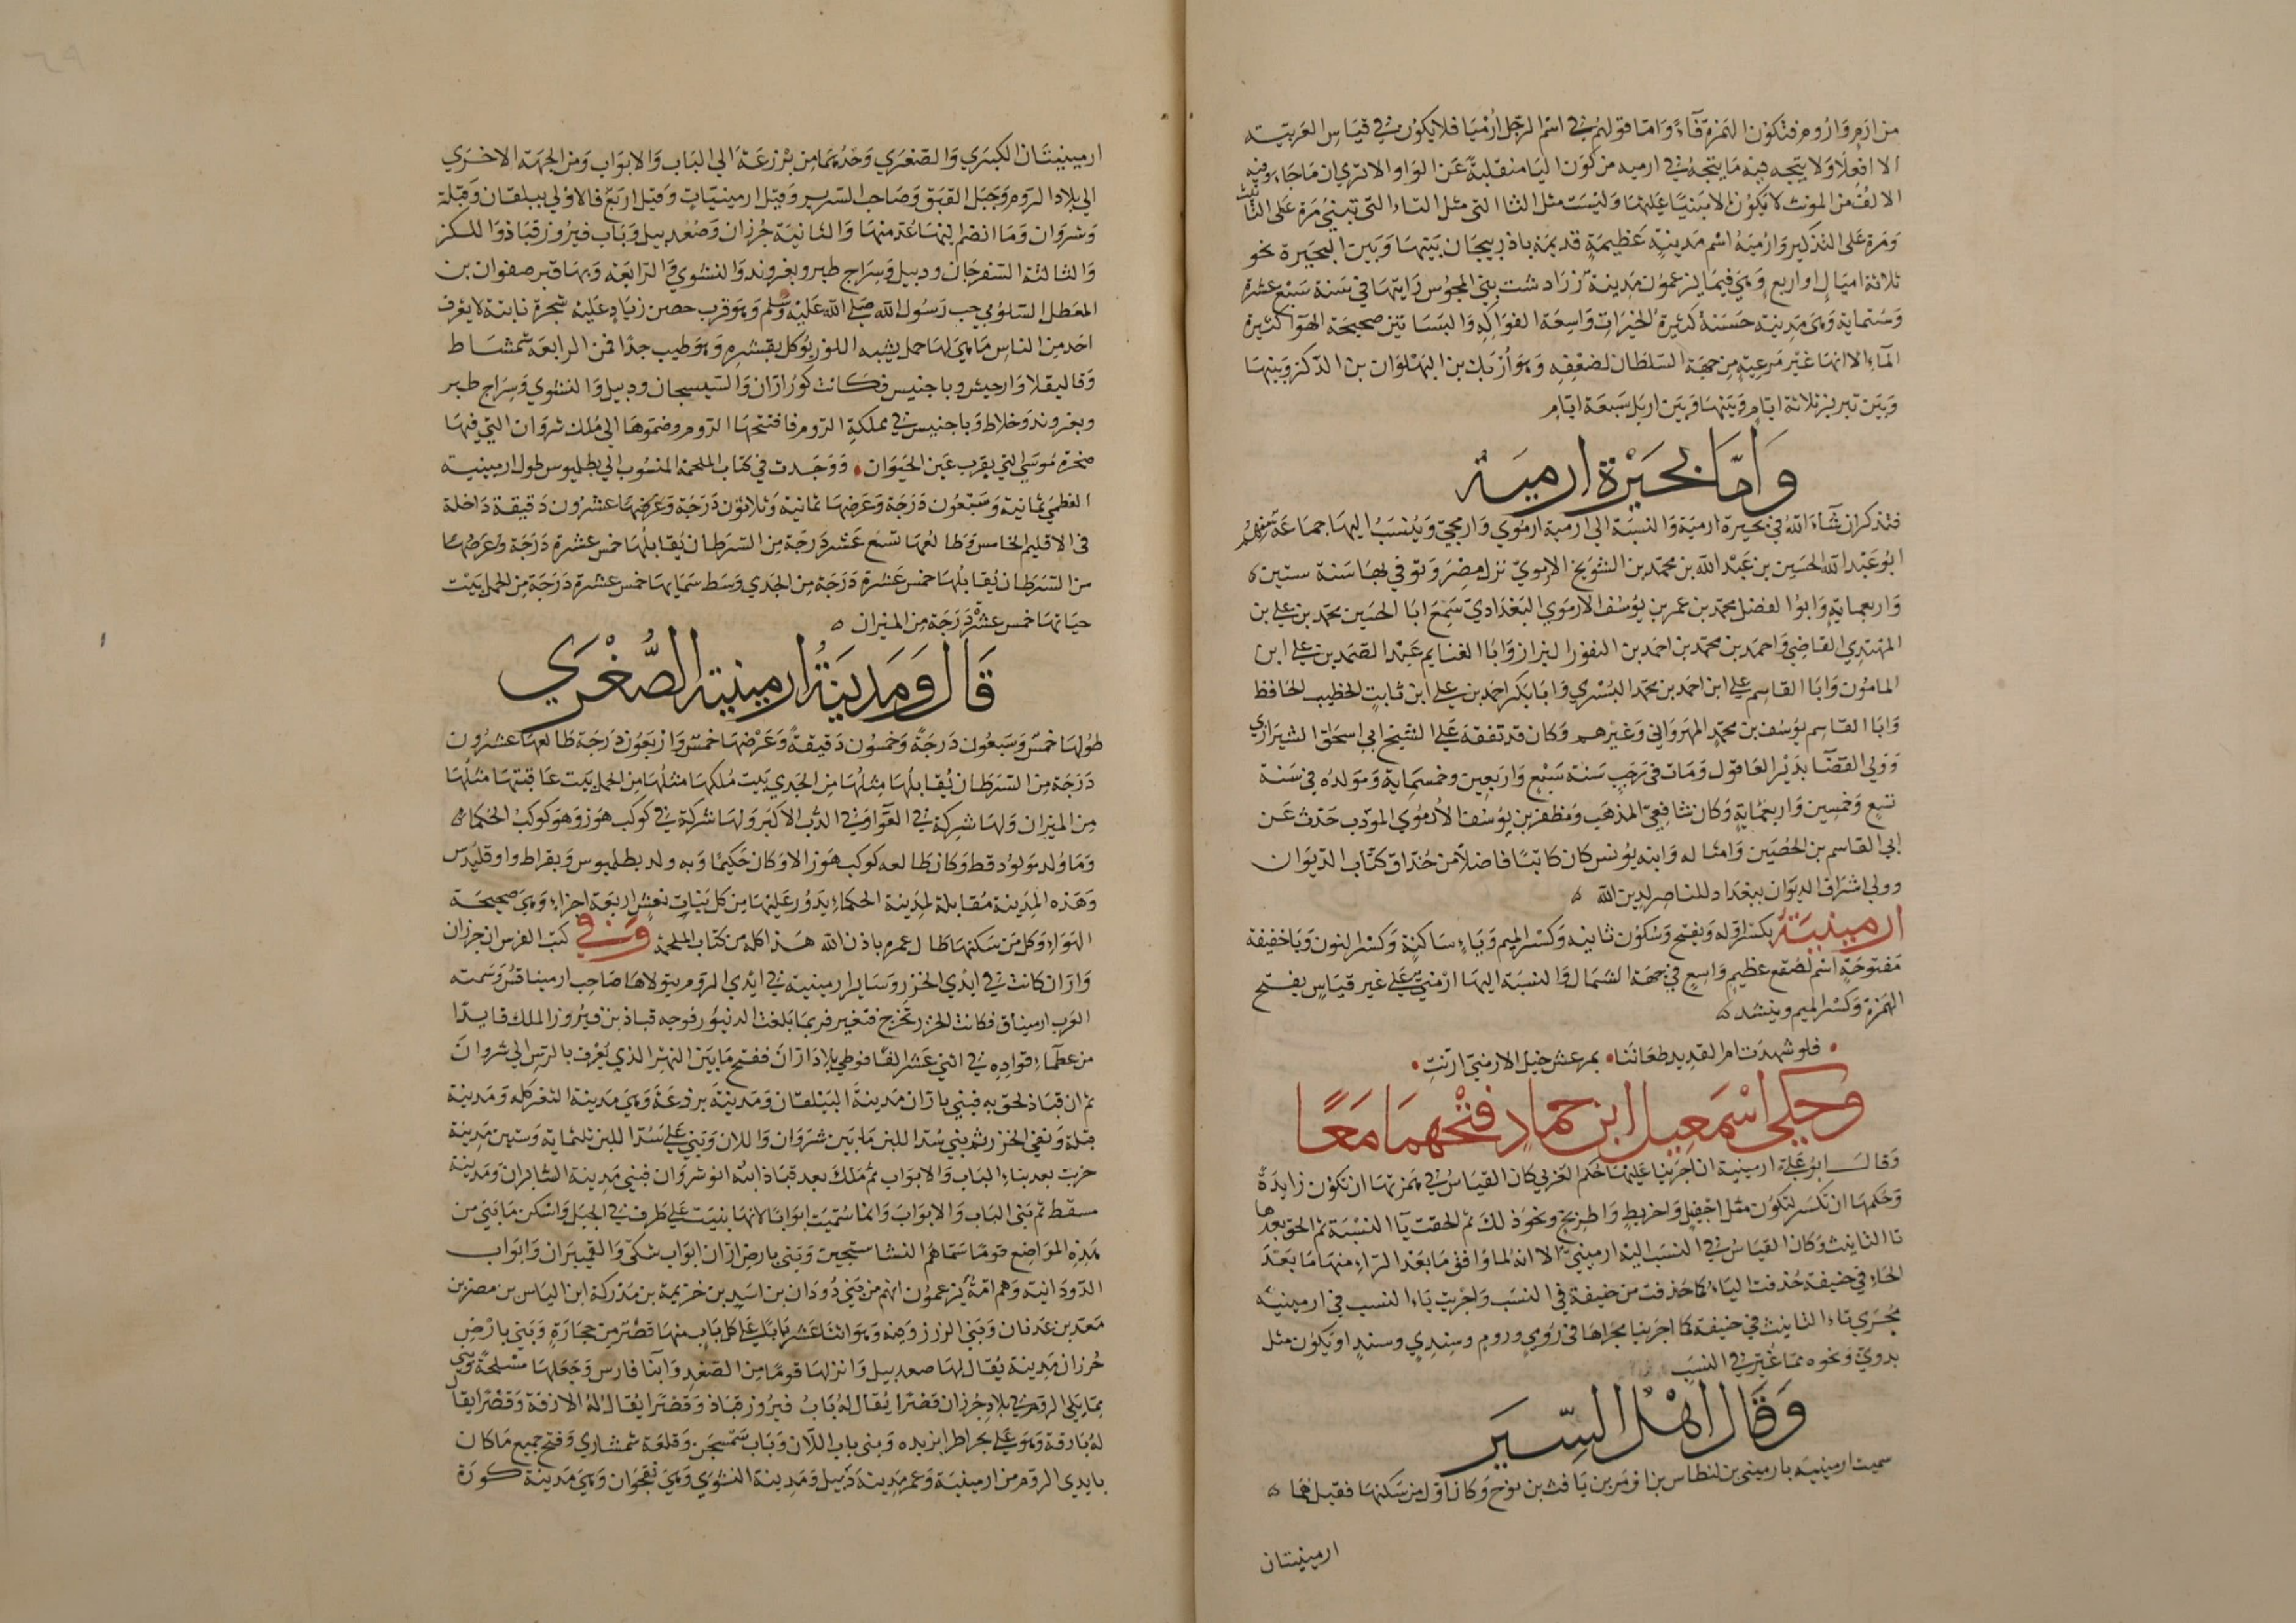 من ارم وارومر فتكون الهمزة فاء وامّا قولهم في اسم الرجل ارميا فلا يكون في قياس العربيته
الا افعلا ولا يتجه فيه ما يتجه في ارميه من كون اليا منقلبة عن الواو الا ترى ان ما جاء وفيه
الالف من المونث لا يكون الا مبنيا عليها وليست مثل التا التي تبنى مرة على التانيث
ومرة على التذكير وارميه اسم مدينة عظيمة قديمة باذربيجان بينها وبين البحيرة نحو
ثلاثة اميال او اربع وهي فيما يزعمون مدينة زرادشت نبي المجوس رايتها في سنة سبع عشرة
وستماية وهي مدينة حسنة كثيرة الخيرات واسعة الفواكه والبساتين صحيحة الهوا كثيرة
الماء الا انها غير مرعية من جهة السلطان لضعفه وهو ازبك بن البهلوان بن الدكز وبينها
وبين تبريز ثلاثة ايام وبينها وبين اربل سبعة ايام
وامّا بحيرة ارمية
فتذكر ان شاء الله في بحيرة ارمية والنسبة الى ارمية ارموي وارمجي وينسب اليها جماعة منهم
ابو عبد الله الحسين بن عبد الله بن محمد بن الشويخ الارموي نزل مصر وتوفي بها سنة ستين
واربعماية وابو الفضل محمد بن عمر بن يوسف الارموي البغدادي سمع ابا الحسين محمد بن علي بن
المهتدي القاضي واحمد بن محمد بن احمد بن النفور البزاز وابا الغنايم عبد الصمد بن علي ابن
المامون وابا القاسم علي ابن احمد بن محمد البسري وابا بكر احمد بن علي ابن ثابت الخطيب الحافظ
وابا القاسم يوسف بن محمد المهرواني وغيرهم وكان قد تفقه على الشيخ ابي اسحق الشيرازي
وولي القضا بدير العاقول ومات في رجب سنة سبع واربعين وخمسماية ومولده في سنة
تسع وخمسين واربعماية وكان شافعي المذهب ومظفر بن يوسف الارموي المودب حدث عن
ابي القاسم بن الحصين وامثاله وابنه يونس كان كاتبا فاضلا من حذاق كتاب الديوان
وولي اشراف الديوان ببغداد للناصر لدين الله
ارمينية بكسر اوله ويفتح وسكون ثانيه وكسر الميم وياء ساكنة وكسر النون ويا خفيفة
مفتوحة اسم لصقع عظيم واسع في جهة الشمال والنسبة اليها ارمني على غير قياس بفتح
الهمزة وكسر الميم وينشد
فلو شهدت ام القديد طعاننا بمرعش خيل الارمني ارنت
وحكي اسمعيل ابن حماد فتحهما معًا
وقال ابو علي ارمينية ان اجرينا عليها حكم العربي كان القياس في همزتها ان تكون زايدة
وحكمها ان تكسر لتكون مثل اجفيل واخريط واطريح ونحو ذلك ثم الحقت يا النسبة ثم الحق بعدها
تا التانيث وكان القياس في النسب اليه ارميني الا انه لما وافق ما بعد الراء منها ما بعد
الحاء في حنيفة حذفت الياء كما حذفت من حنيفة في النسب واجريت ياء النسب في ارمينية
مجرى تاء التانيث في حنيفة كما اجرينا مجراها في رومي وروم وسندي وسند او يكون مثل
بدوي ونحوه مما غير في النسب
وقال اهل السير
سميت ارمينية بارميني بن لنطاس بن اومر بن يافث بن نوح وكان اول من سكنها فقيل هما
ارمينيتان
ارمينيتان الكبرى والصغرى وحدهما من برزعة الى الباب والابواب ومن الجهة الاخرى
الى بلاد الروم وجبل القبق وصاحب السرير وقيل ارمينيات وقيل اربع فالاولى بيلقان وقبلة
وشروان وما انضم اليها عد منها والثانية جرزان وصغدبيل وباب فيروز قباذ واللكز
والثالثة السفرجان ودبيل وسراج طير وبغروند والنشوي والرابعة وبها قبر صفوان بن
المعطل السلمي صاحب رسول الله صلى الله عليه وسلم وهو قرب حصن زياد عليه شجرة نابتة لا يعرف
احد من الناس ما هي لها حمل يشبه اللوز يوكل بقشره وهو طيب جدا فمن الرابعة شمشاط
وقاليقلا وارجيش وباجنيس فكانت كور اران والسيسجان ودبيل والنشوي وسراج طير
وبغروند وخلاط وباجنيس في مملكة الروم فافتتحها الروم وضموها الى ملك شروان التي فيها
صخرة موسى التي بقرب عين الحيوان ووجدت في كتاب الملحمة المنسوب الى بطليوس طول ارمينية
العظمى ثمانية وسبعون درجة وعرضها ثمانية وثلاثون درجة وعرضها عشرون دقيقة داخلة
في الاقليم الخامس وطالعها تسع عشر درجة من السرطان يقابلها خمس عشرة درجة وعرضها
من السرطان يقابلها خمس عشرة درجة من الجدي وسط سمايها خمس عشرة درجة من الحمل بيت
حياتها خمس عشر درجة من الميزان
قال ومدينة ارمينية الصغرى
طولها خمس وسبعون درجة وخمسون دقيقة وعرضها خمس واربعون درجة طالعها عشرون
درجة من السرطان يقابلها مثلها من الجدي بيت ملكها مثلها من الحمل بيت عاقبتها مثلها
من الميزان ولها شركة في العوا وفي الدب الاكبر ولها شركة في كوكب هوز وهو كوكب الحكماء
وما ولد مولود قط وكان طالعه كوكب هوز الا وكان حكيما وبه ولد بطليوس وبقراط واوقليدس
وهذه المدينة مقابلة لمدينة الحكماء يدور عليها من كل بنات نعش اربعة اجزاء وهي صحيحة
الهواء وكل من سكنها طال عمره باذن الله هذا كله من كتاب الملحمة وفي كتب الفرس ان جرزان
واران كانت في ايدي الخزر وساير ارمينية في ايدي الروم يتولاها صاحب ارميناقس وسمته
العرب ارميناق فكانت الخزر تخرج فتغير فربما بلغت الدينور فوجه قباذ بن فيروز الملك قايدا
من عظماء قواده في اثني عشر الفا فوطي بلاد اران ففتح ما بين النهر الذي يعرف بالرس الى شروان
ثم ان قباذ لحق به فبنى باران مدينة البيلقان ومدينة برزعة وهي مدينة الثغر كله ومدينة
قبلة ونفى الخزر ثم بنى سد اللبن ما بين شروان واللان وبنى على سد اللبن ثلثماية وستين مدينة
خربت بعد بناء الباب والابواب ثم ملك بعد قباذ ابنه انوشروان فبنى مدينة الشابران ومدينة
مسقط ثم بنى الباب والابواب وانما سميت ابوابا لانها بنيت على طرف في الجبل واسكن ما بنى من
هذه المواضع قوما سماهم النشاستجين وبنى بارض اران ابواب شكى والقميران وابواب
الدودانية وهم امة يزعمون انهم من بني دودان بن اسد بن خزيمة بن مدركة ابن الياس بن مضر بن
معد بن عدنان وبنى الدرذوقية وهو اثنا عشر بابا على كل باب منها قصر من حجارة وبنى بارض
جرزان مدينة يقال لها صغدبيل وانزلها قوما من الصغد وابنا فارس وجعلها مسلحة وبنى
مما يلي الروم في بلاد جرزان قصرا يقال له باب فيروز قباذ وقصرا يقال له الاذقة وقصرا يقال
له بارقة وهو على بحر اطرابزيده وبنى باب اللان وباب سمسجن وقلعة شمشاري وفتح جميع ما كان
بايدي الروم من ارمينية وعمر مدينة دبيل ومدينة النشوي وهي نقجوان وهي مدينة كورة